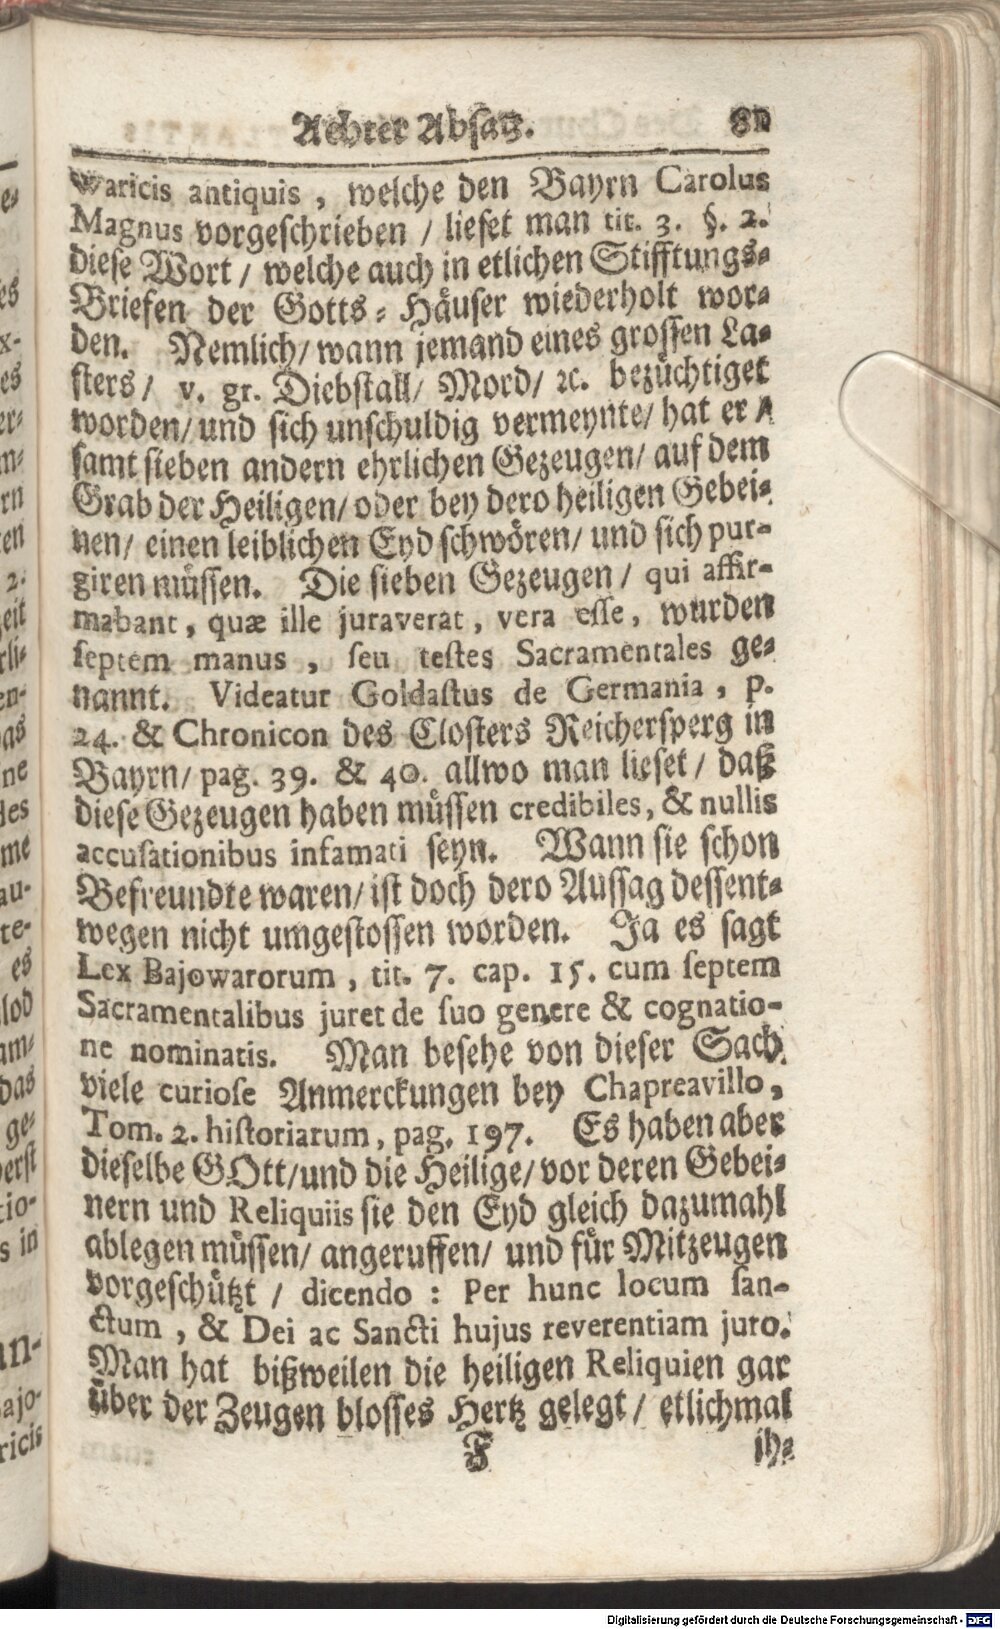 Achter Absatz. 81
waricis antiquis, welche den Bayrn Carolus
Magnus vorgeschrieben / lieset man tit. 3. §. 2.
diese Wort / welche auch in etlichen Stifftungs-
Briefen der Gotts-Häuser wiederholt wor-
den. Nemlich/ wann jemand eines grossen La-
sters / v. gr. Diebstall/ Mord/ ꝛc. bezüchtiget
worden/ und sich unschuldig vermeynte/ hat er
samt sieben andern ehrlichen Gezeugen/ auf dem
Grab der Heiligen/ oder bey dero heiligen Gebei-
nen/ einen leiblichen Eyd schwören/ und sich pur-
giren müssen. Die sieben Gezeugen / qui affir-
mabant, quæ ille juraverat, vera esse, wurden
septem manus, seu testes Sacramentales ge-
nannt. Videatur Goldastus de Germania, p.
24. & Chronicon des Closters Reichersperg in
Bayrn/ pag. 39. & 40. allwo man lieset / daß
diese Gezeugen haben müssen credibiles, & nullis
accusationibus infamati seyn. Wann sie schon
Befreundte waren/ ist doch dero Aussag dessent-
wegen nicht umgestossen worden. Ja es sagt
Lex Bajowarorum, tit. 7. cap. 15. cum septem
Sacramentalibus juret de suo genere & cognatio-
ne nominatis. Man besehe von dieser Sach
viele curiose Anmerckungen bey Chapreavillo,
Tom. 2. historiarum, pag. 197. Es haben aber
dieselbe GOtt/ und die Heilige/ vor deren Gebei-
nern und Reliquiis sie den Eyd gleich dazumahl
ablegen müssen/ angeruffen/ und für Mitzeugen
vorgeschützt / dicendo : Per hunc locum san-
ctum, & Dei ac Sancti hujus reverentiam juro.
Man hat bißweilen die heiligen Reliquien gar
über der Zeugen blosses Hertz gelegt / etlichmal
F ih-
Digitalisierung gefördert durch die Deutsche Forschungsgemeinschaft - DFG